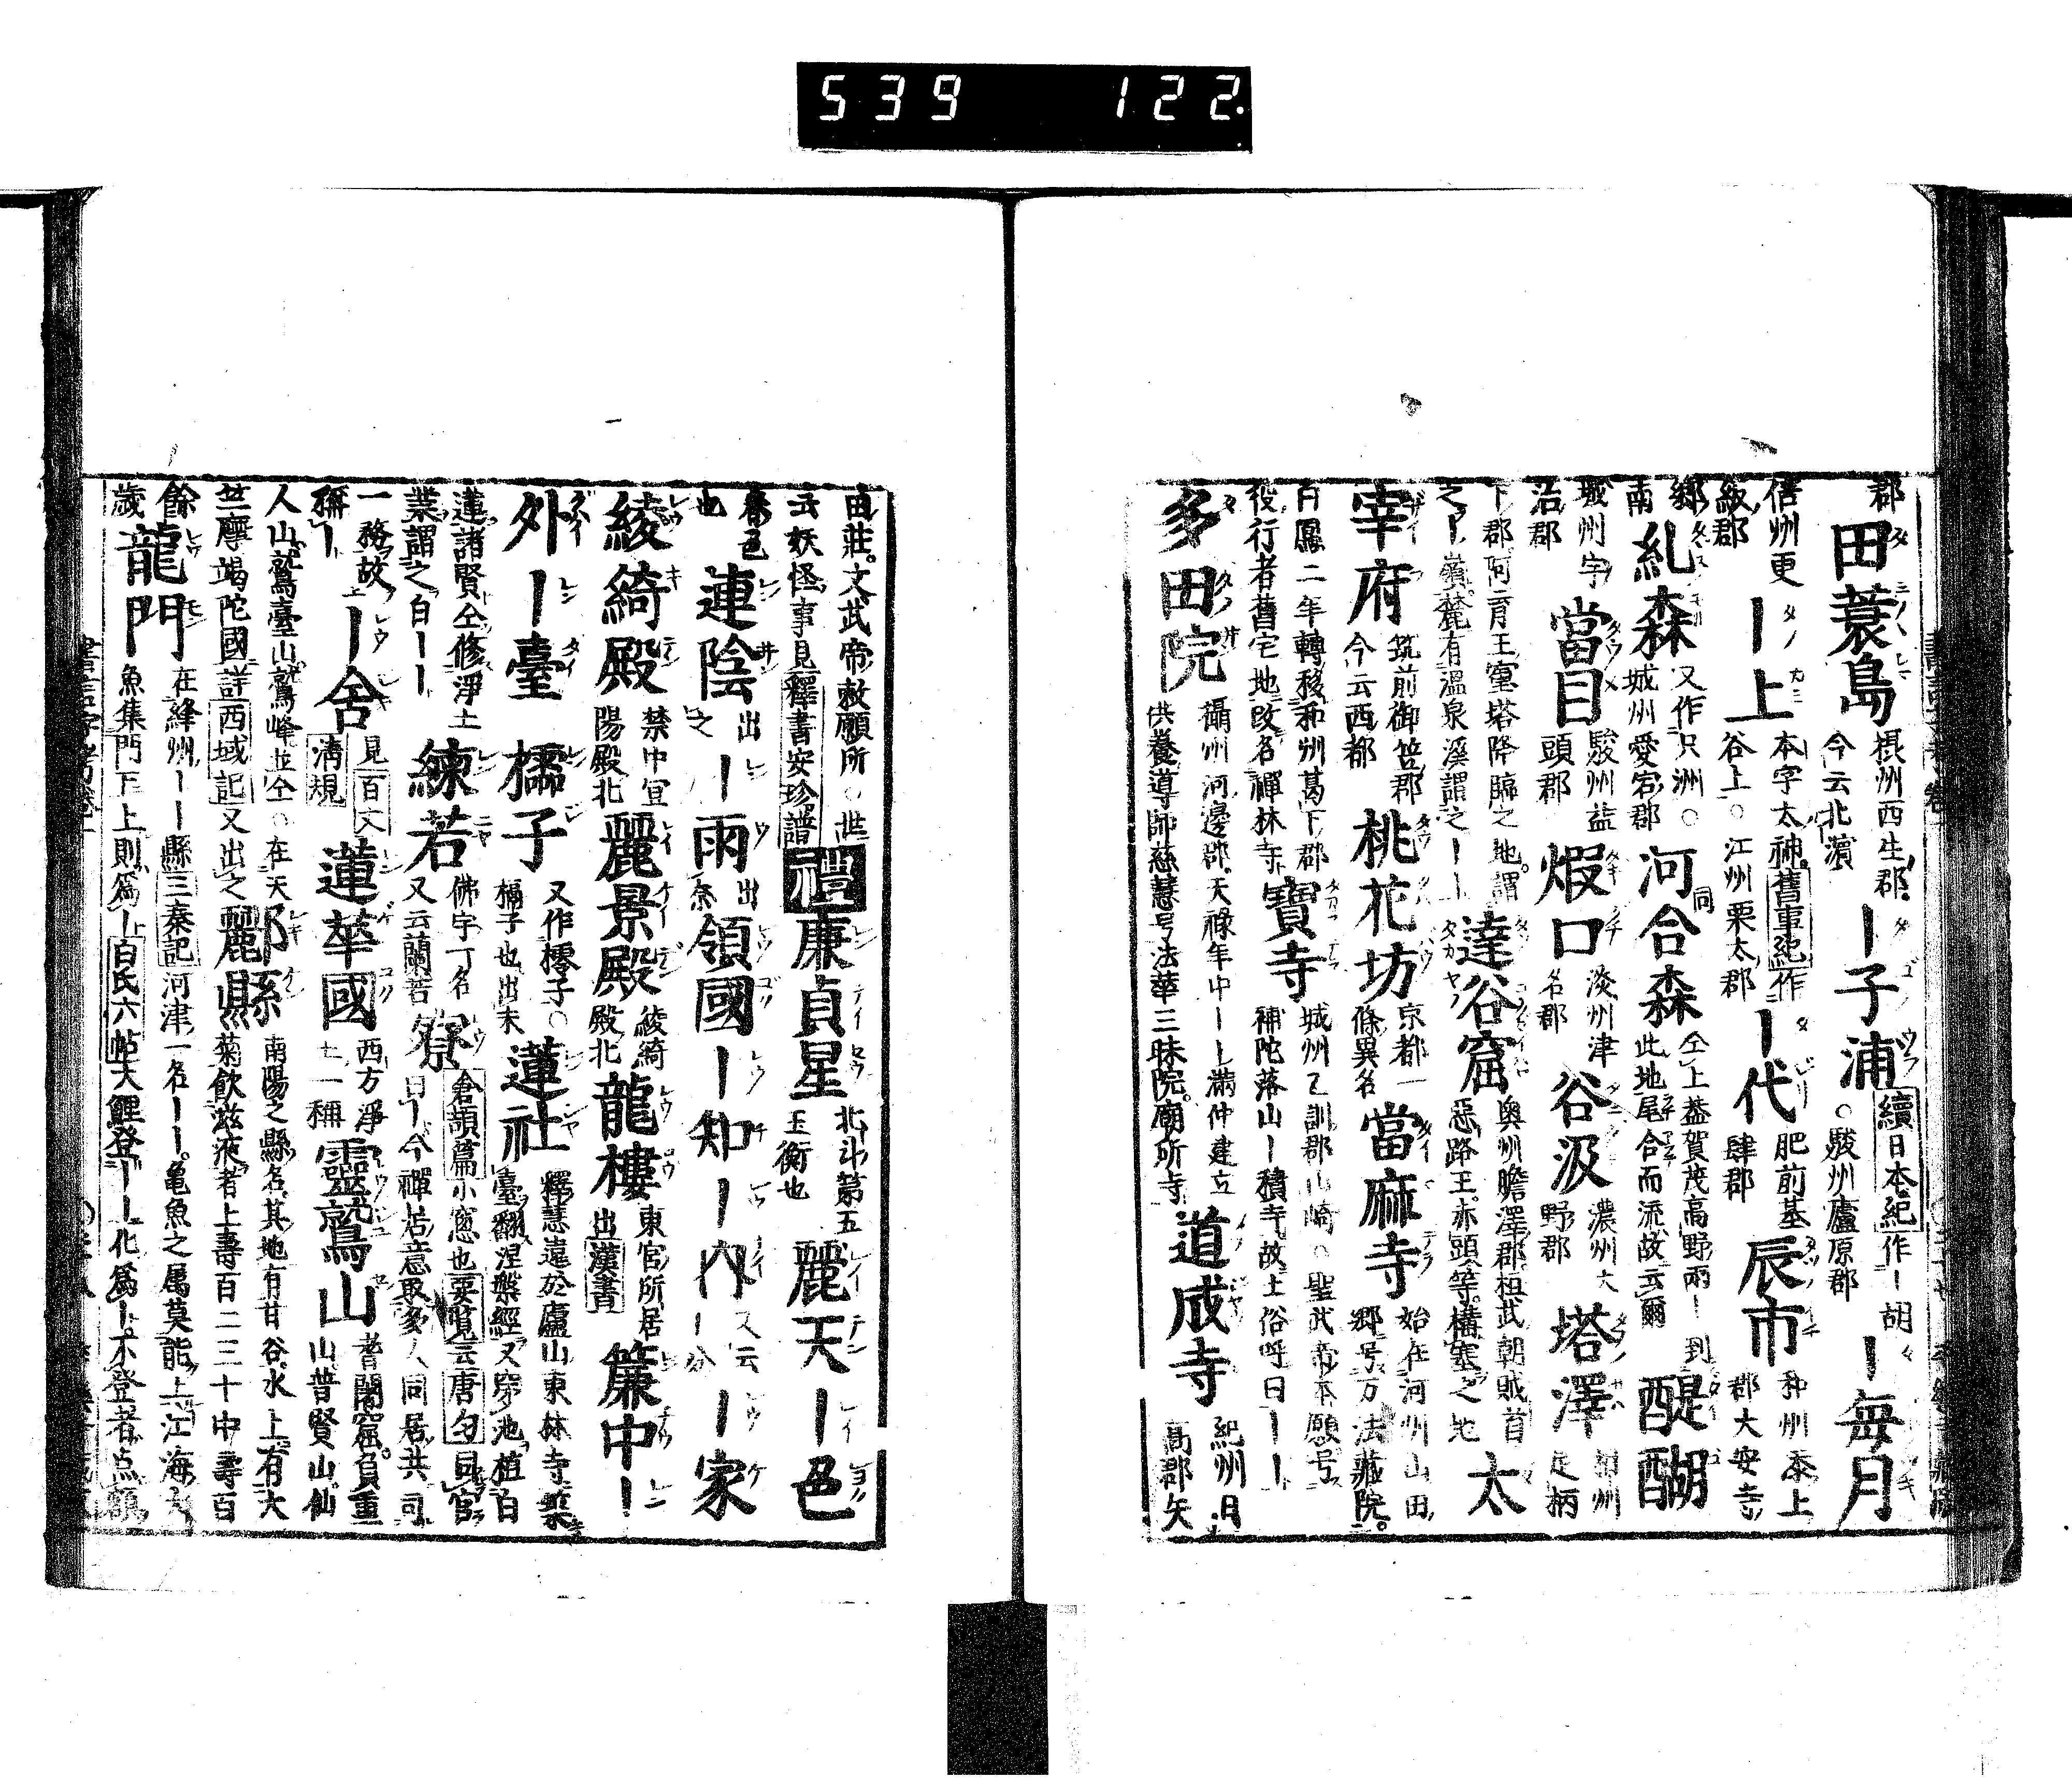 539 122
郡田蓑島摂州西生郡今云北濱｜子浦續日本紀作｜胡々○駿州廬原郡｜毎月
信州更級郡｜上本字太神舊事紀作谷上○江州栗太郡｜代肥前基肆郡辰市和州添上郡大安寺
郷南糺森又作只洲○城州愛宕郡河合森仝上蓋賀茂高野兩｜到此地尾合而流故云爾醍醐
城州宇治郡當目駿州益頭郡煆口淡州津名郡谷汲濃州大野郡塔澤相州足柄
下郡阿育王窣塔降臨之地謂之｜｜嶺麓有溫泉溪謂之｜｜達谷窟奥州膽澤郡桓武朝賊首惡路王赤頭等構塞之地太
宰府筑前御笠郡今云西都桃花坊京都一條異名當麻寺始在河州山田郷号万法藏院
白鳳二年轉移和州葛下郡役行者舊宅地改名禪林寺寶寺城州乙訓郡山崎○聖武帝本願号補陀落山｜積寺故土俗呼曰｜｜
多田院攝州河邊郡天祿年中｜｜滿仲建立供養導師慈慧号法華三昧院廟所寺道成寺紀州日高郡矢
田莊文武帝敕願所○世云妖怪事見釋書安珍譜禮廉貞星北斗第五玉衡也麗天｜色
春色也連陰出之｜雨出領國｜知｜内又云｜分｜家
綾綺殿禁中宜陽殿北麗景殿綾綺殿北龍樓東宮所居出漢書簾中｜
外｜臺檽子又作櫺子○槅子也出末蓮社釋慧遠於廬山東林寺築臺翻涅槃經又穿池植白
蓮諸賢仝修淨土業謂之白｜｜練若佛寺丁名又云蘭若寮倉頡篇小窓也要覧云唐名同官曰｜今禪居意取多人同居共司
一務故稱｜｜舍見百丈清規蓮華國西方淨土一稱靈鷲山耆闍窟負重山普賢山仙
人山鷲臺山鷲峰並仝○在天竺摩竭陀國詳西域記又出之酈縣南陽之縣名其地有甘谷水上有大菊飲滋液者上壽百二三十中壽百
餘歲龍門在絳州｜｜縣三秦記河津一名｜｜龜魚之属莫能上江海大魚集門下上則爲｜白氏六帖大鯉登｜｜化爲｜不登者点額